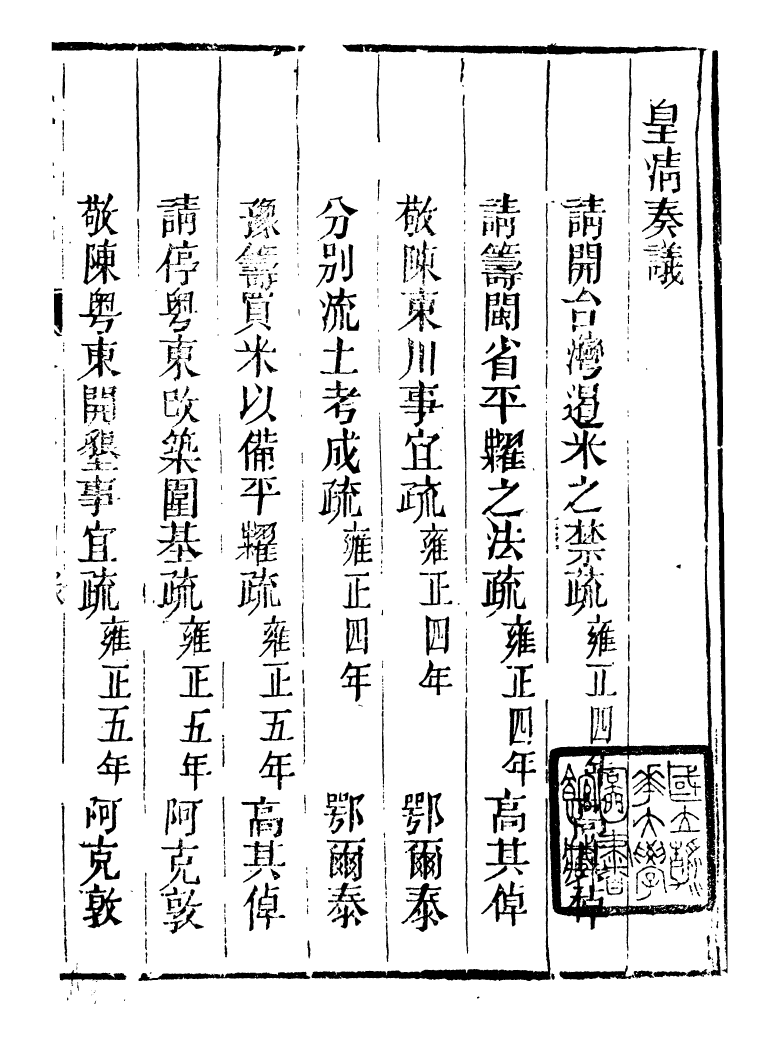 皇清奏議
請開台灣遏米之禁疏 雍正四年 高其倬
請籌閩省平糶之法疏 雍正四年 高其倬
敬陳東川事宜疏 雍正四年 鄂爾泰
分别流土考成疏 雍正四年 鄂爾泰
豫籌買米以備平糶疏 雍正五年 高其倬
請停粤東改築圍基疏 雍正五年 阿克敦
敬陳粤東開墾事宜疏 雍正五年 阿克敦
國立清華大學圖書館藏